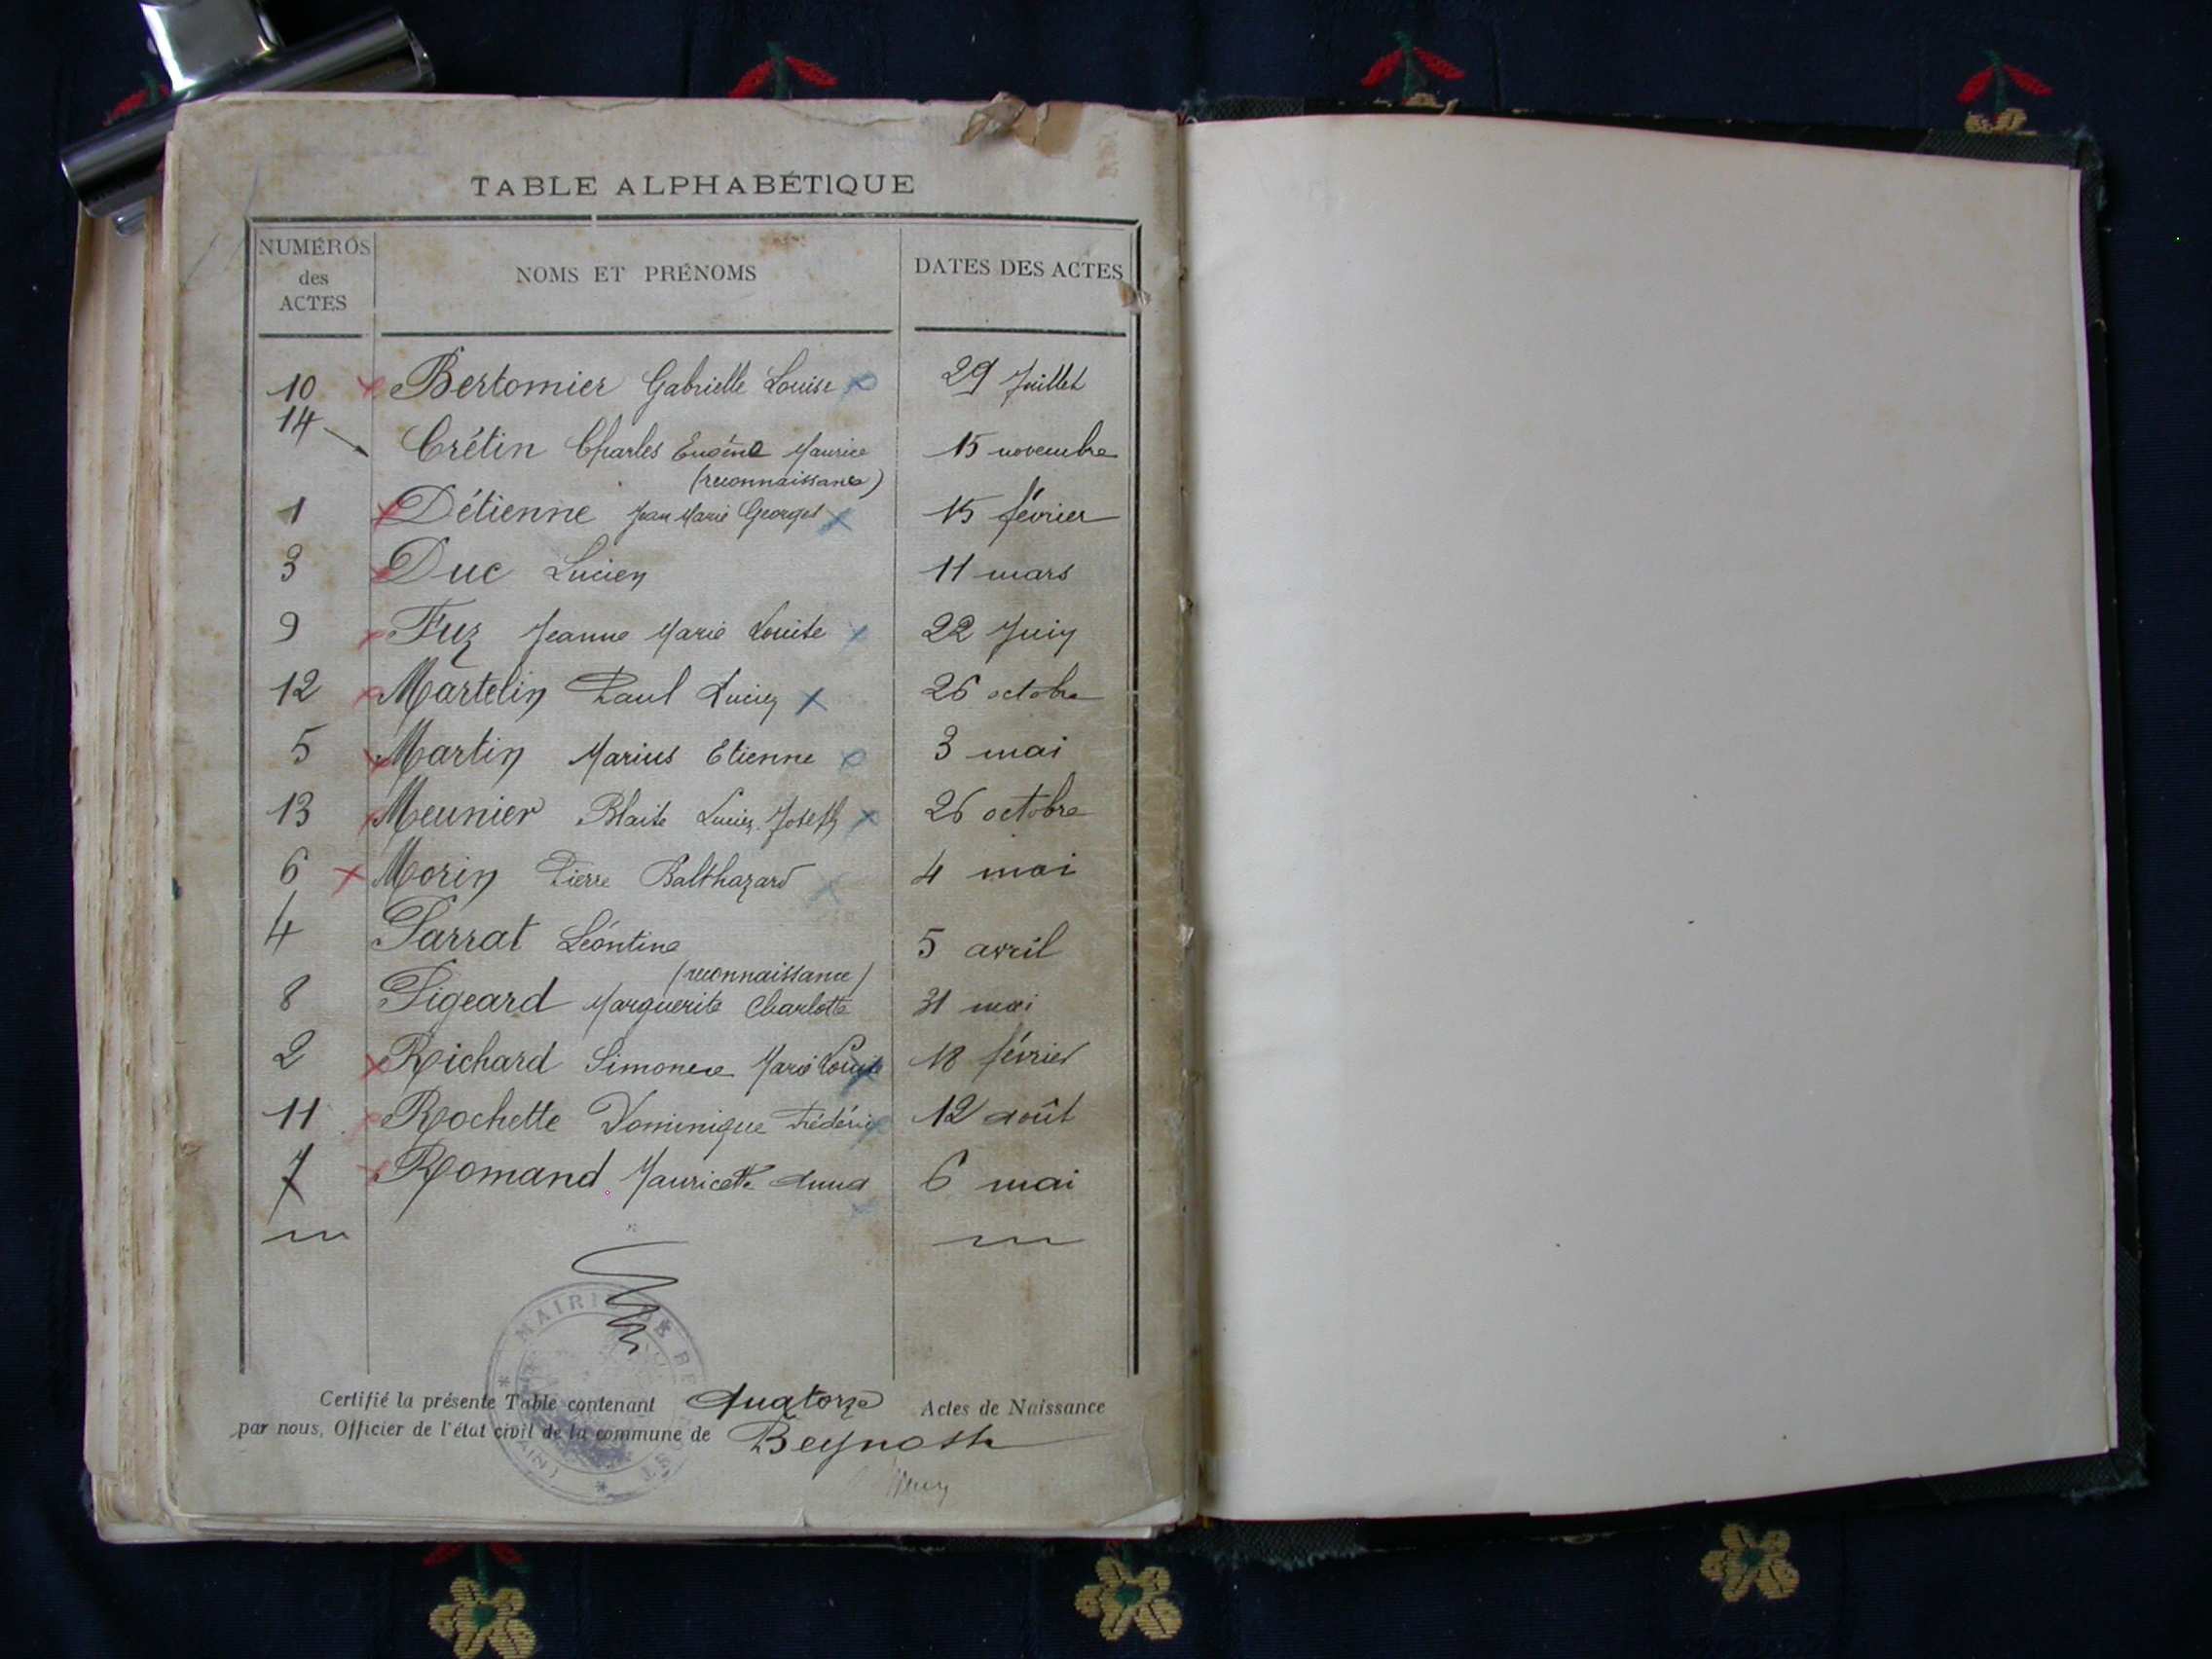 TABLE ALPHABÉTIQUE
NUMÉROS des ACTES NOMS ET PRÉNOMS DATES DES ACTES
10 Bertomier Gabrielle Louise 29 Juillet
14 Crétin Charles Eugène Maurice 15 novembre
(reconnaissance)
1 Détienne Jean Marie Georges 15 février
3 Duc Lucien 11 mars
9 Fuz Jeanne Marie Louise 22 Juin
12 Martelin Paul Lucien 26 octobre
5 Martin Marius Etienne 3 mai
13 Meunier Blaise Lucien Joseph 26 octobre
6 Morin Pierre Balthazard 4 mai
4 Parrat Léontine 5 avril
(reconnaissance)
8 Pigeard Marguerite Charlotte 31 mai
2 Richard Simone Marie Louise 18 février
11 Rochette Dominique Frédéric 12 août
7 Romand Mauricette Anna 6 mai
MAIRIE DE BEYNOST
(AIN)
Certifié la présente Table contenant Quatorze Actes de Naissance
par nous, Officier de l'état civil de la commune de Beynost